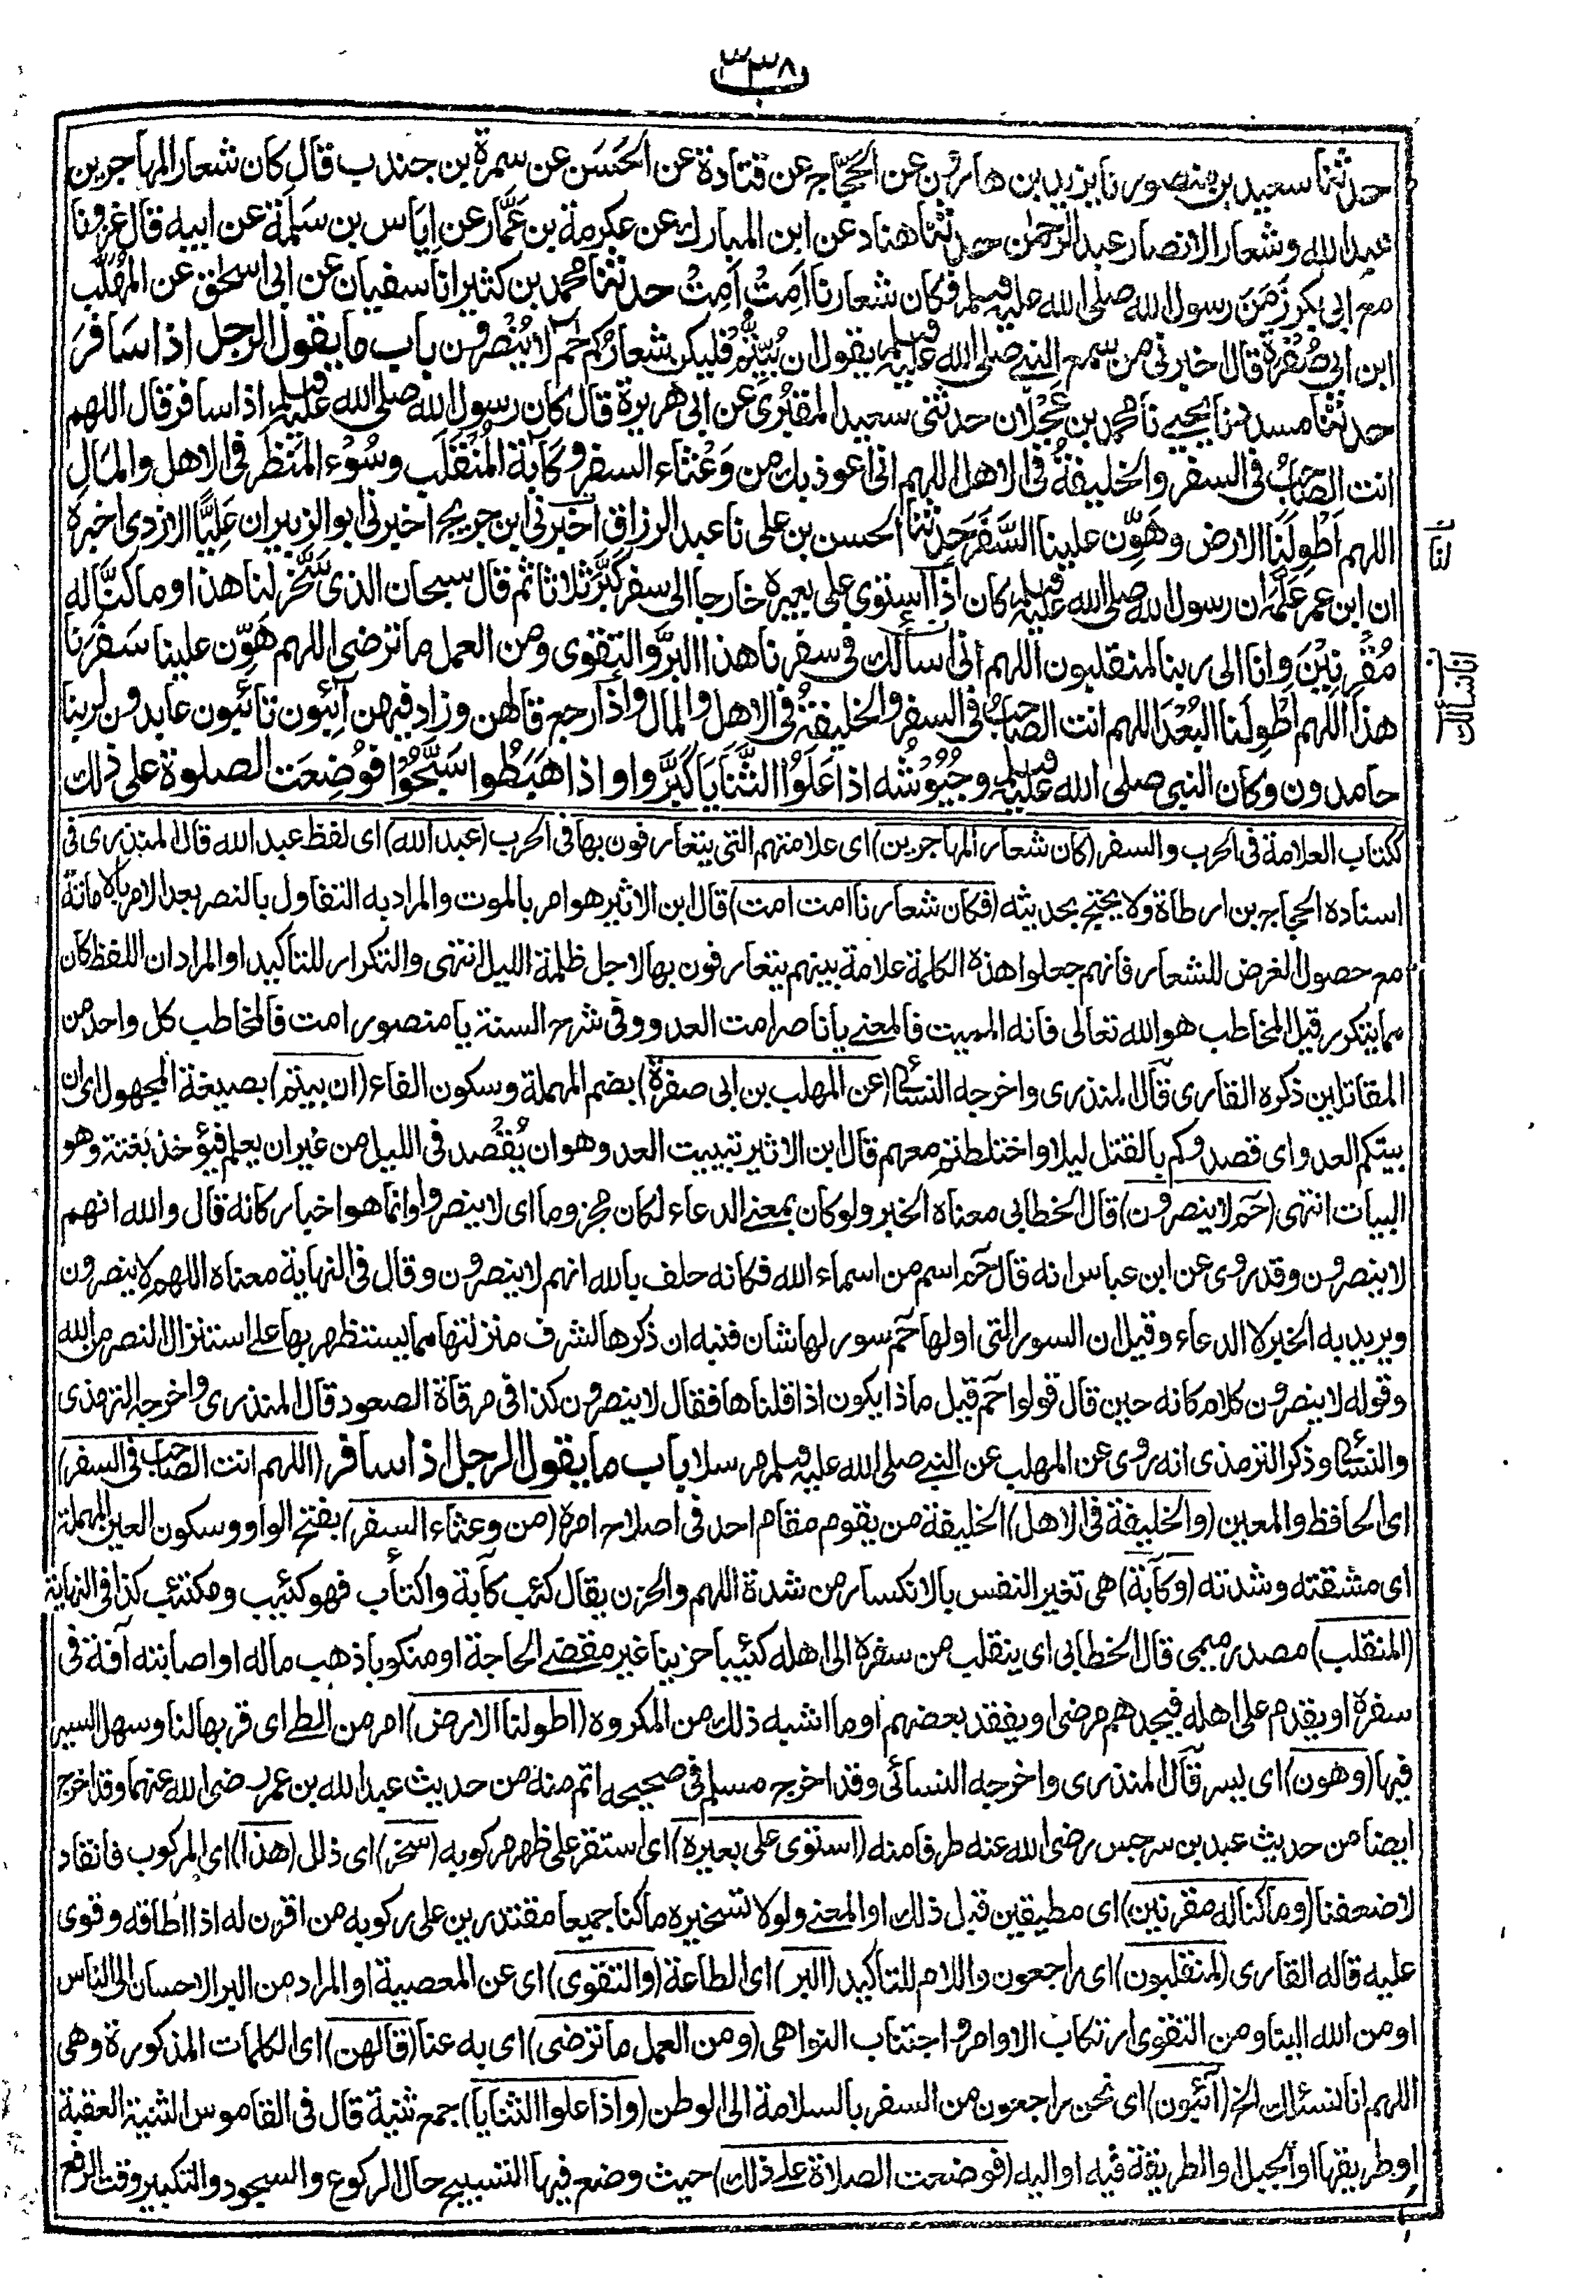 ٣٣٨
حدثنا سعيد بن منصور نا يزيد بن هارون عن الحَجَّاج عن قتادة عن الحَسَن عن سمرة بن جندب قال كان شعار المهاجرين
عبد الله وشعار الانصار عبد الرحمٰن حدثنا هناد عن ابن المبارك عن عكرمة بن عَمَّار عن اِيَاس بن سَلَمَة عن ابيه قال غزونا
مع ابى بكر زَمَنَ رسول الله صلى الله عليه وسلم فكان شعارنا اَمِتْ اَمِتْ حدثنا محمد بن كثير انا سفيان عن ابى اسحٰق عن المُهَلَّب
ابن ابى صُفْرَة قال اخبرنى من سمع النبى صلى الله عليه وسلم يقول ان بُيِّتُّم فليكن شعارُكم حٰم لا يُنْصَرون باب ما يقول الرجل اذا سَافَرَ
حدثنا مسدد نا يحيى نا محمد بن عَجْلَان حدثنى سعيد المقبُرى عن ابى هريرة قال كان رسول الله صلى الله عليه وسلم اذا سافر قال اللهم
انت الصاحبُ فى السفر والخليفةُ فى الاهل اللهم انى اعوذ بك من وَعْثَاء السفر وكَاٰبة المُنْقَلَب وسُوْء المَنْظَر فى الاهل والمال
اللهم اَطْوِ لَنَا الارض وهَوِّن علينا السَّفَرَ حدثنا الحسن بن على نا عبد الرزاق اخبرنى ابن جريج اخبرنى ابو الزبير ان عَلِيًّا الازدى اخبره
لنَا
ان ابن عمر عَلَّمَه ان رسول الله صلى الله عليه وسلم كان اذا استوى على بعيره خارجا الى سفر كَبَّرَ ثلاثا ثم قال سبحان الذى سَخَّر لنا هذا وما كنَّا له
مُقْرِنِيْنَ وانا الى ربنا لمنقلبون اللهم انى اسألك فى سفرنا هذا البِرَّ والتقوى ومن العمل ما ترضى اللهم هَوِّن علينا سَفَرَنا
انا نسألك
هذا اللهم اطْوِ لَنا البُعْدَ اللهم انت الصاحبُ فى السفر والخليفةُ فى الاهل والمال واذا رجع قالهن وزاد فيهن آئِبون تائبون عابدون لربنا
حامدون وكان النبى صلى الله عليه وسلم وجُيُوْشُه اذا عَلَوُا الثَّنَايَا كَبَّروا واذا هَبَطُوا سَبَّحُوْا فوُضِعَت الصلوة على ذلك
ككتاب العلامة فى الحرب والسفر (كان شعار المهاجرين) اى علامتهم التى يتعارفون بها فى الحرب (عبد الله) اى لفظ عبد الله قال المنذرى فى
اسناده الحجاج بن ارطاة ولا يحتج بحديثه (فكان شعارنا امت امت) قال ابن الاثير هو امر بالموت والمراد به التفاول بالنصر بعد الامر بالاماتة
مع حصول الغرض للشعار فانهم جعلوا هذه الكلمة علامة بينهم يتعارفون بها لاجل ظلمة الليل انتهى والتكرار للتاكيد او المراد ان اللفظ كان
مما يتكرر قيل المخاطب هو الله تعالى فانه المميت فالمعنى يا ناصر امت العدو وفى شرح السنة يا منصور امت فالمخاطب كل واحد من
المقاتلين ذكره القارى قال المنذرى واخرجه النسائى (عن المهلب بن ابى صفرة) بضم المهملة وسكون الفاء (ان بيتم) بصيغة المجهول اى ان
بيتكم العدو اى قصدوكم بالقتل ليلا واختلطتم معهم قال ابن الاثير تبييت العدو هو ان يُقْصَد فى الليل من غير ان يعلم فيؤخذ بَغتة وهو
البيات انتهى (حٰم لا ينصرون) قال الخطابى معناه الخبر ولو كان بمعنى الدعاء لكان مجزوما اى لا ينصروا وانما هو اخبار كانه قال والله انهم
لا ينصرون وقد روى عن ابن عباس انه قال حٰم اسم من اسماء الله فكانه حلف بالله انهم لا ينصرون وقال فى النهاية معناه اللهم لا ينصرون
ويريد به الخبر لا الدعاء وقيل ان السور التى اولها حٰم سور لها شان فنبه ان ذكرها لشرف منزلتها مما يستظهر بها على استنزال النصر من الله
وقوله لا ينصرون كلام كانه حين قال قولوا حٰم قيل ماذا يكون اذا قلناها فقال لا ينصرون كذا فى مرقاة الصعود قال المنذرى واخرجه الترمذى
والنسائى وذكر الترمذى انه روى عن المهلب عن النبى صلى الله عليه وسلم مرسلا باب ما يقول الرجل اذا سافر (اللهم انت الصاحب فى السفر)
اى الحافظ والمعين (والخليفة فى الاهل) الخليفة من يقوم مقام احد فى اصلاح امره (من وعثاء السفر) بفتح الواو وسكون العين المهملة
اى مشقته وشدته (وكآبة) هى تغير النفس بالانكسار من شدة الهم والحزن يقال كئب كآبة واكتأب فهو كئيب ومكتئب كذا فى النهاية
(المنقلب) مصدر ميمى قال الخطابى اى ينقلب من سفره الى اهله كئيبا حزينا غير مقضى الحاجة او منكوبا ذهب ماله او اصابته آفة فى
سفره او يقدم على اهله فيجدهم مرضى او يفقد بعضهم او ما اشبه ذلك من المكروه (اطو لنا الارض) امر من الطى اى قربها لنا وسهل السير
فيها (وهون) اى يسر قال المنذرى واخرجه النسائى وقد اخرجه مسلم فى صحيحه اتم منه من حديث عبد الله بن عمر رضى الله عنهما وقد اخرج
ايضا من حديث عبد بن سرجس رضى الله عنه طرفا منه (استوى على بعيره) اى استقر على ظهر مركوبه (سخر) اى ذلل (هذا) اى المركوب فانقاد
لاضعفنا (وما كنا له مقرنين) اى مطيقين قبل ذلك او المعنى ولولا تسخيره ما كنا جميعا مقتدرين على ركوبه من اقرن له اذا اطاقه وقوى
عليه قاله القارى (لمنقلبون) اى راجعون واللام للتاكيد (البر) اى الطاعة (والتقوى) اى عن المعصية او المراد من البر الاحسان الى الناس
او من الله الينا ومن التقوى ارتكاب الاوامر واجتناب النواهى (ومن العمل ما ترضى) اى به عنا (قالهن) اى الكلمات المذكورة وهى
اللهم انا نسئلك الخ (آئبون) اى نحن راجعون من السفر بالسلامة الى الوطن (واذا علوا الثنايا) جمع ثنية قال فى القاموس الثنية العقبة
او طريقها او الجبل او الطريقة فيه او اليه (فوضعت الصلاة على ذلك) حيث وضع فيها التسبيح حال الركوع والسجود والتكبير وقت الرفع